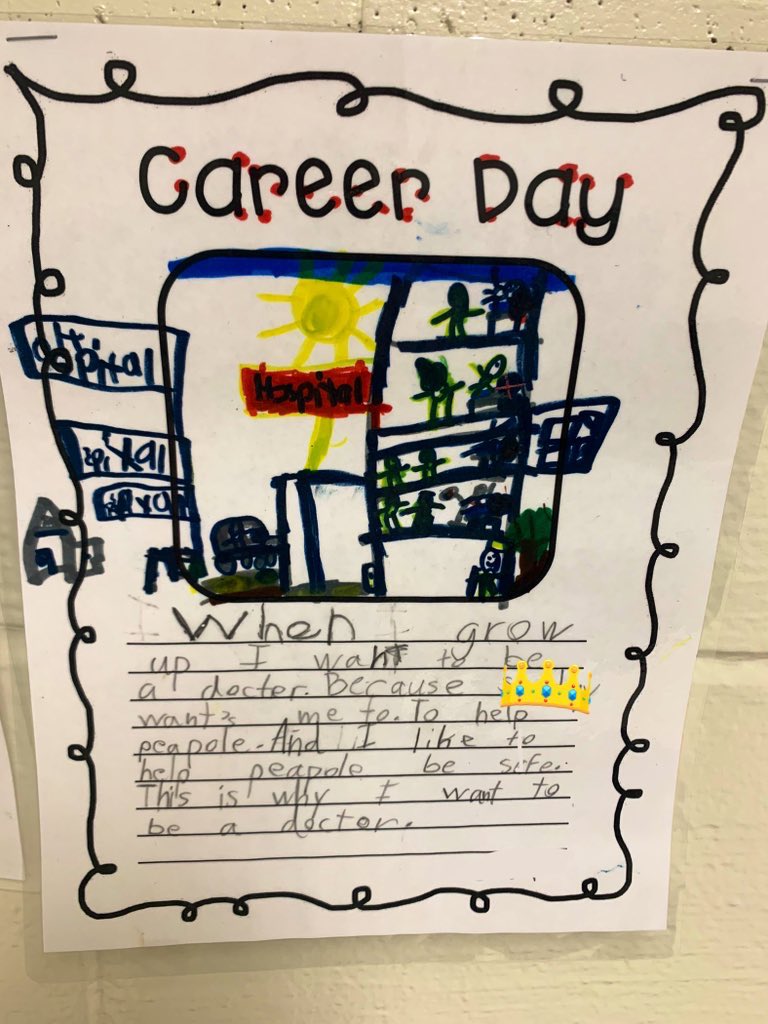 Career Day
Hospital
Hospital
pital
When I grow
up I want to be
a docter. Because
want's me to. To help
peapole. And I like to
help peapole be sife.
This is why I want to
be a doctor.